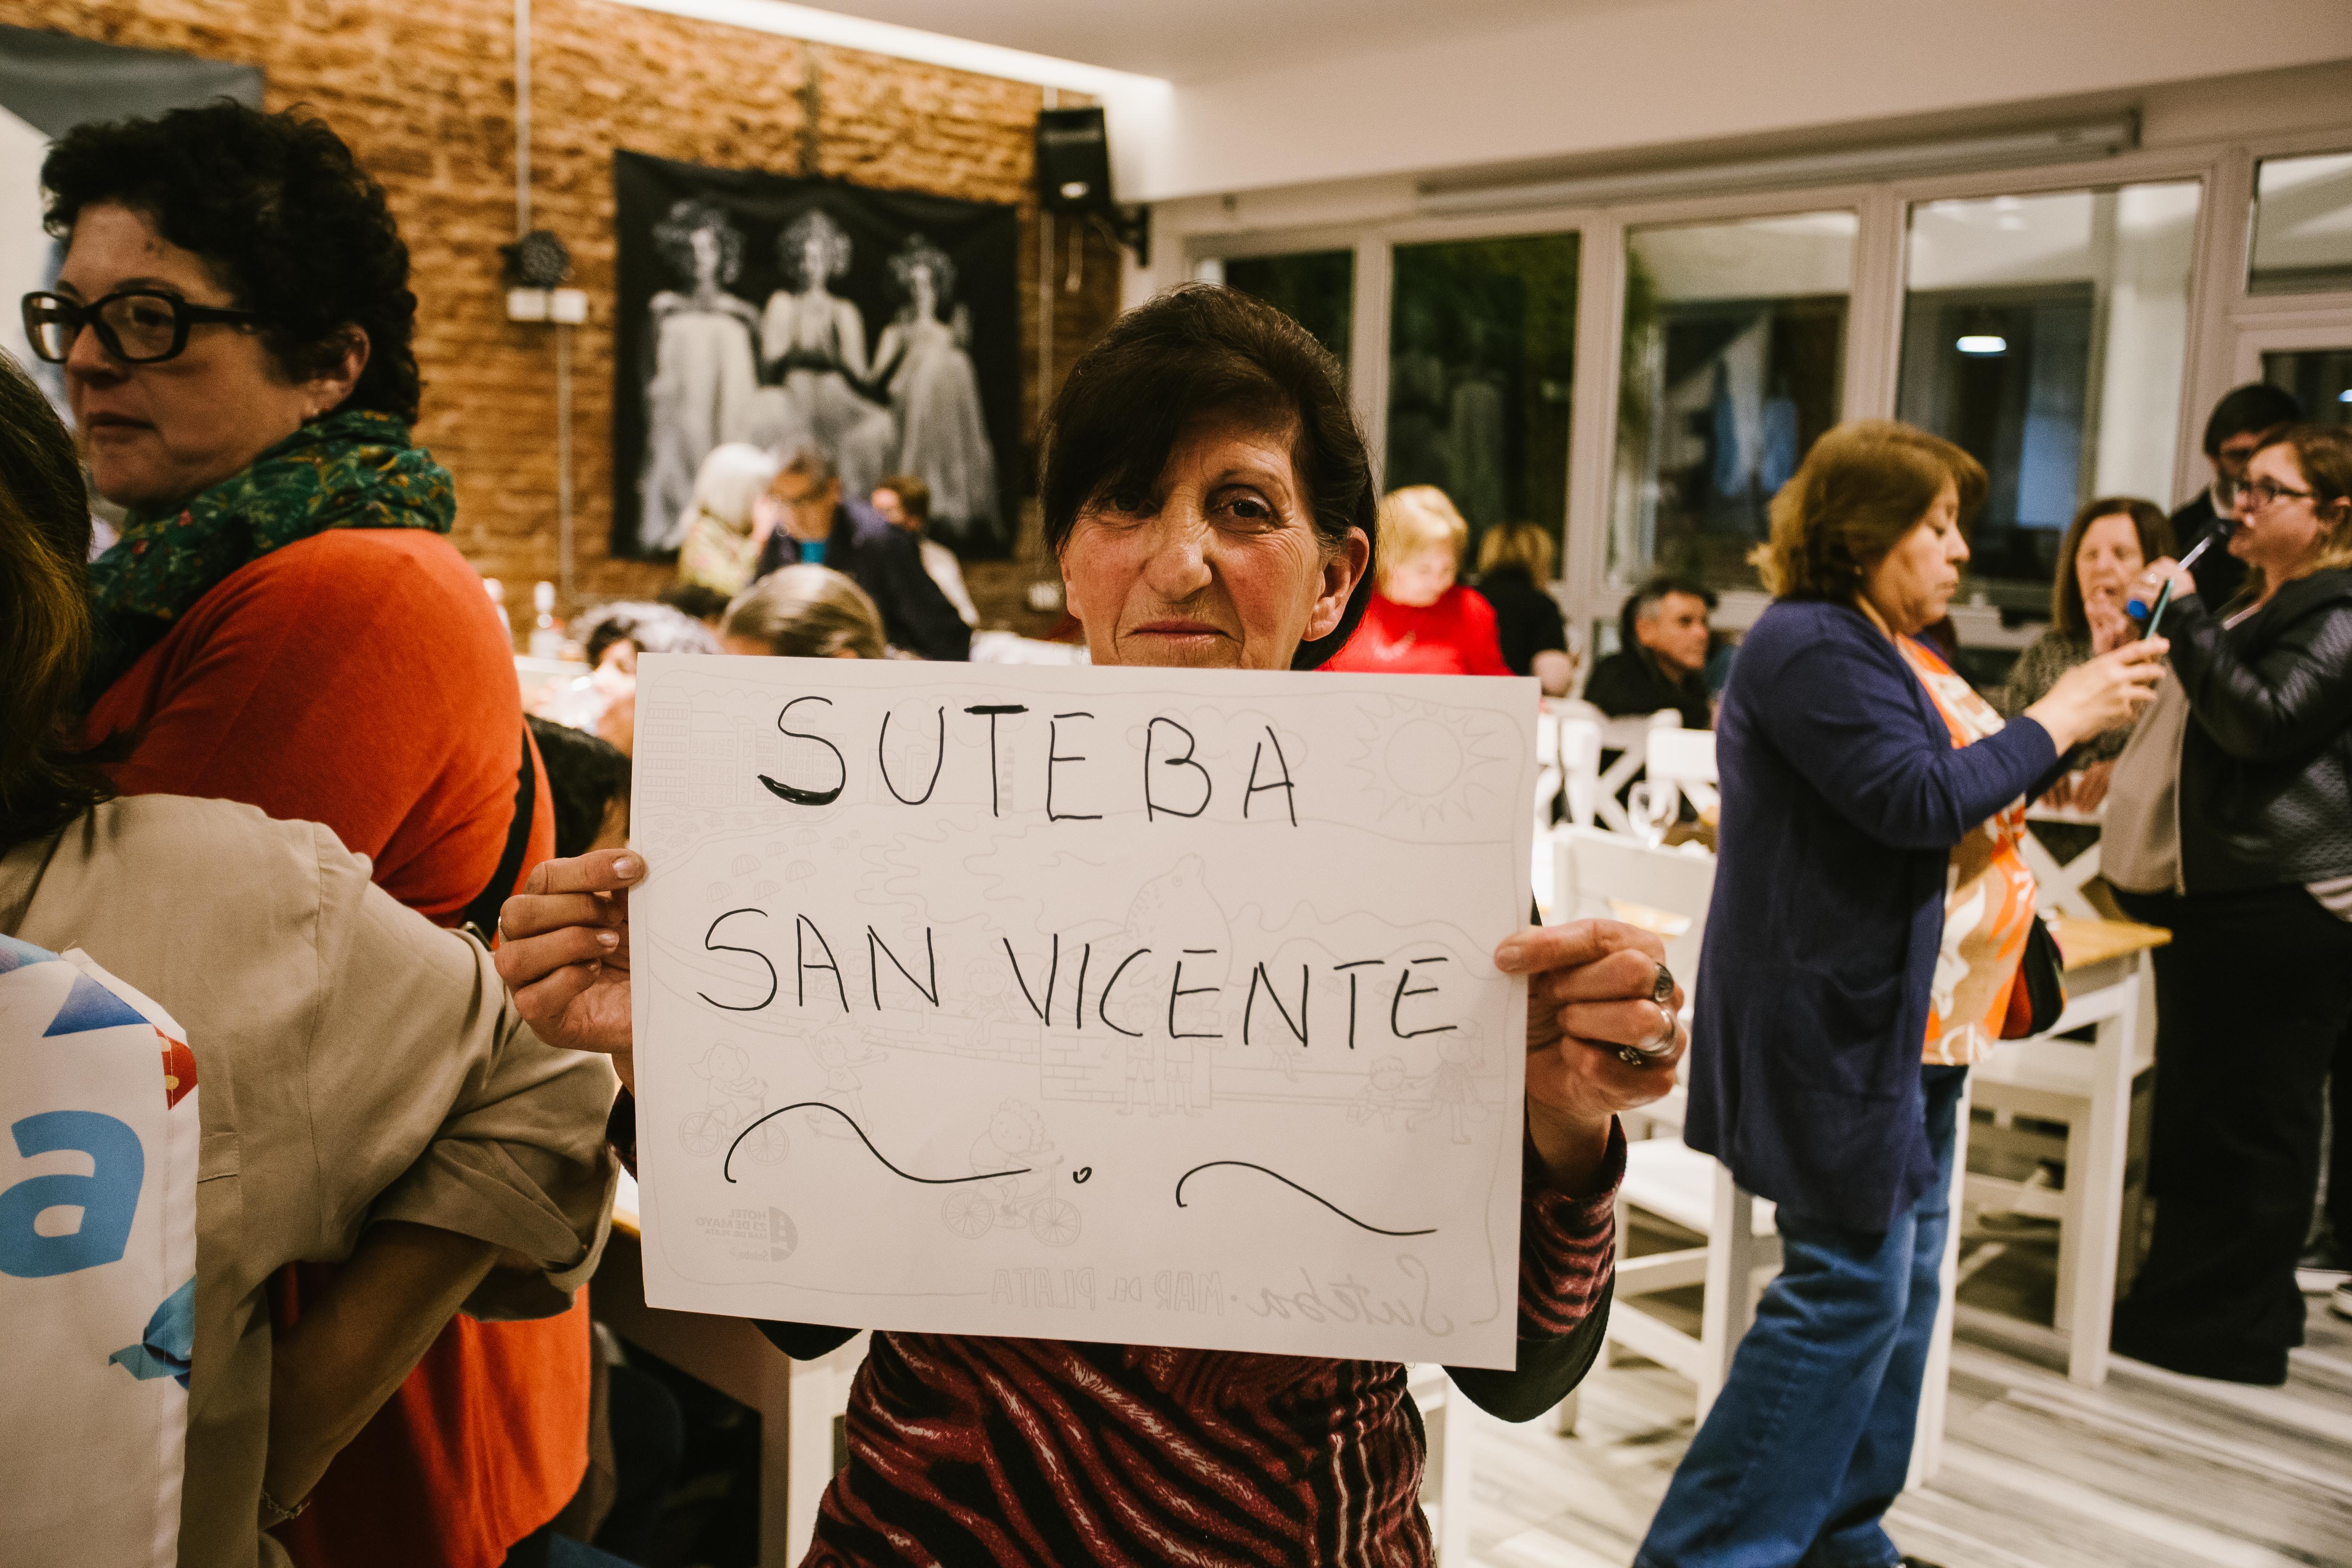 SUTEBA
SAN VICENTE
HOTEL
23 DE MAYO
MAR DEL PLATA
Suteba
Suteba · MAR DEL PLATA
a